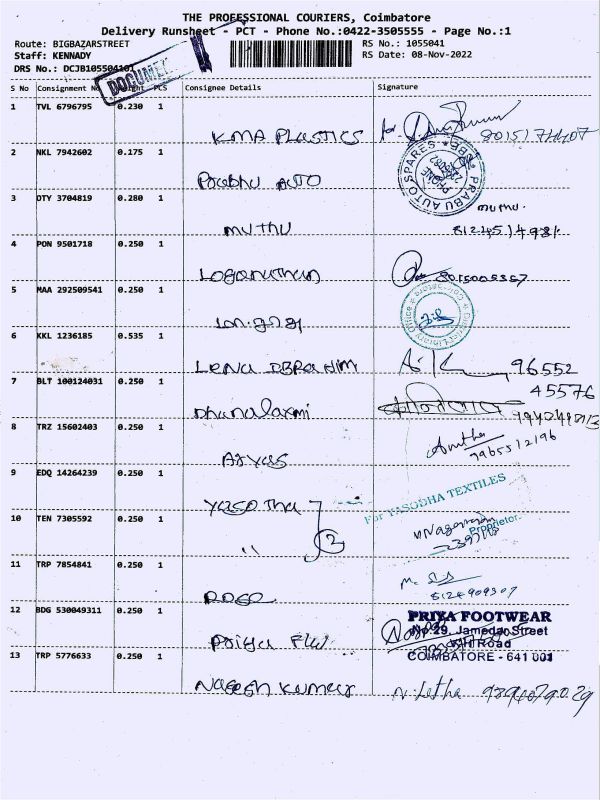 THE PROFESSIONAL COURIERS, Coimbatore
Delivery Runsheet - PCT - Phone No.:0422-3505555 - Page No.:1
Route: BIGBAZARSTREET
RS No.: 1055041
Staff: KENNADY
RS Date: 08-Nov-2022
DRS No.: DCJB105504101
DOCUMENT
S No Consignment No Weight PCS Consignee Details Signature
1 TVL 6796795 0.230 1
KMA PLASTICS
2 NKL 7942602 0.175 1
Prabhu AUTO
PRABU AUTO SPARES CBE
PHONE
3 OTY 3704819 0.280 1
muthu
muthu.
4 PON 9501718 0.250 1
Loganathan 8015005357
5 MAA 292509541 0.250 1
District Library Office Coimbatore
6 KKL 1236185 0.535 1
Lena IBRAHIM 96552
45576
7 BLT 100124031 0.250 1
Dhanalaxmi
8 TRZ 15602403 0.250 1
Anitha
9965512196
9 EDQ 14264239 0.250 1
Yasotha
For YASODHA TEXTILES
10 TEN 7305592 0.250 1
" 2
Proprietor.
11 TRP 7854841 0.250 1
8124909307
12 BDG 530049311 0.250 1
Priya F/W
PRIYA FOOTWEAR
No.29, Jamedar Street
Road
COIMBATORE - 641 001
13 TRP 5776633 0.250 1
Nagesh Kumar N. Letha